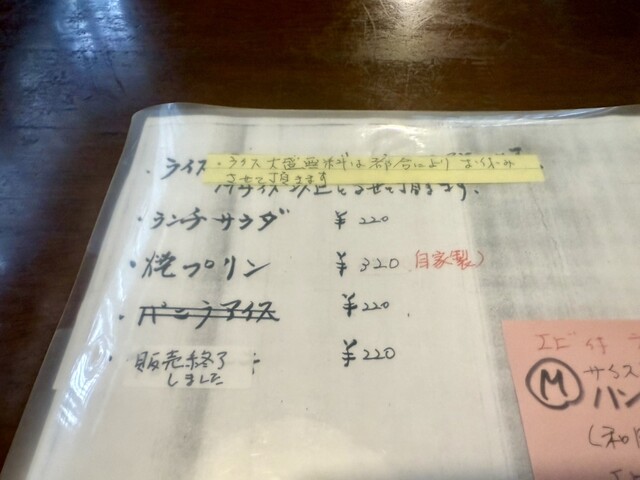 ・ライス
・ライス大盛無料は都合によりお休み
させて頂きます
Mサイズ以上とさせて頂きます。
・ランチサラダ ¥220
・焼プリン ¥320 自家製)
・バニラアイス ¥220
・販売終了 ¥220
しました
エビ付
Ⓜ サイズ
ハン
(和